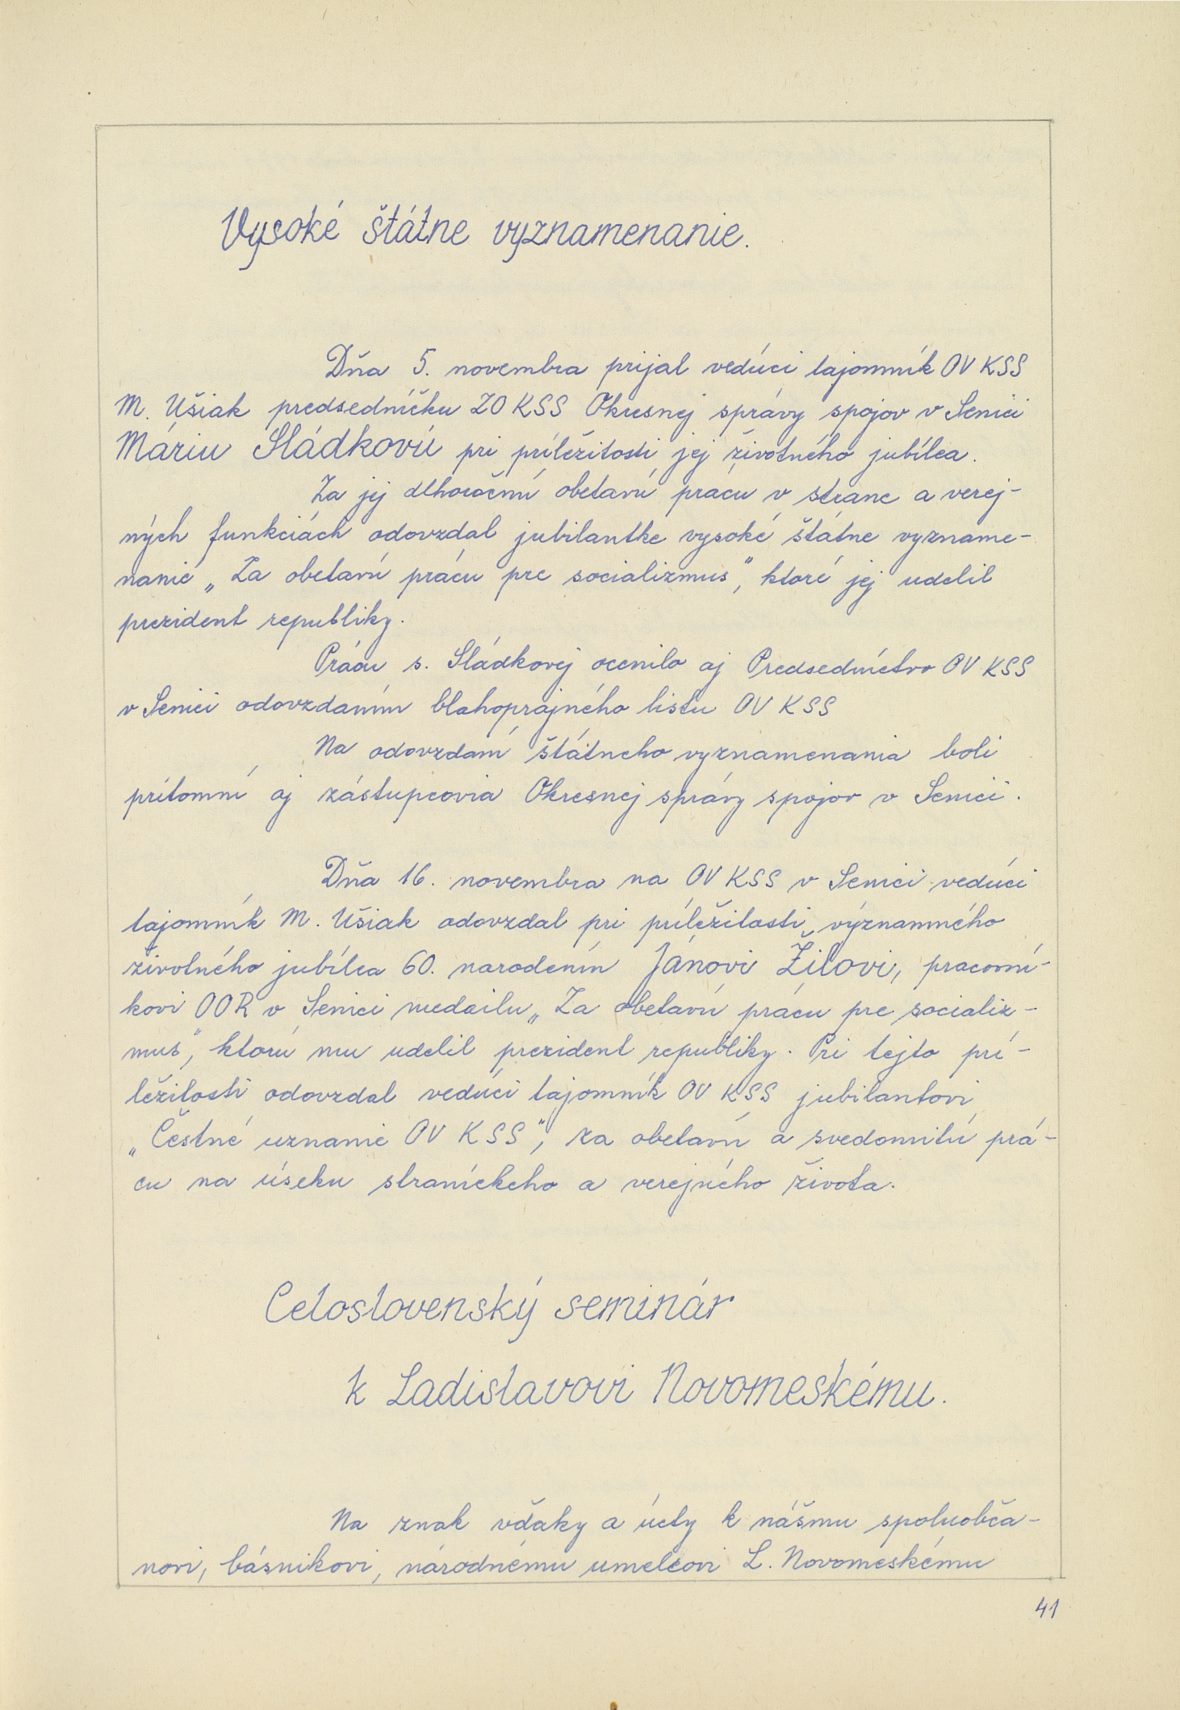 Vysoké štátne vyznamenanie.
Dňa 5. novembra prijal vedúci tajomník OV KSS
M. Ušiak predsedníčku ZO KSS Okresnej správy spojov v Senici
Máriu Sládkovú pri príležitosti jej životného jubilea.
Za jej dlhoročnú obetavú prácu v strane a verej-
ných funkciách odovzdal jubilantke vysoké štátne vyzname-
nanie „Za obetavú prácu pre socializmus", ktoré jej udelil
prezident republiky.
Prácu s. Sládkovej ocenilo aj Predsedníctvo OV KSS
v Senici odovzdaním blahoprajného listu OV KSS
Na odovzdaní štátneho vyznamenania boli
prítomní aj zástupcovia Okresnej správy spojov v Senici.
Dňa 16. novembra na OV KSS v Senici vedúci
tajomník M. Ušiak odovzdal pri príležitosti významného
životného jubilea 60. narodenín Jánovi Žilovi, pracovní-
kovi OOR v Senici medailu „Za obetavú prácu pre socializ-
mus", ktorú mu udelil prezident republiky. Pri tejto prí-
ležitosti odovzdal vedúci tajomník OV KSS jubilantovi
„Čestné uznanie OV KSS", za obetavú a svedomitú prá-
cu na úseku straníckeho a verejného života.
Celoslovenský seminár
k Ladislavovi Novomeskému.
Na znak vďaky a úcty k nášmu spoluobča-
novi, básnikovi, národnému umelcovi L. Novomeskému
41